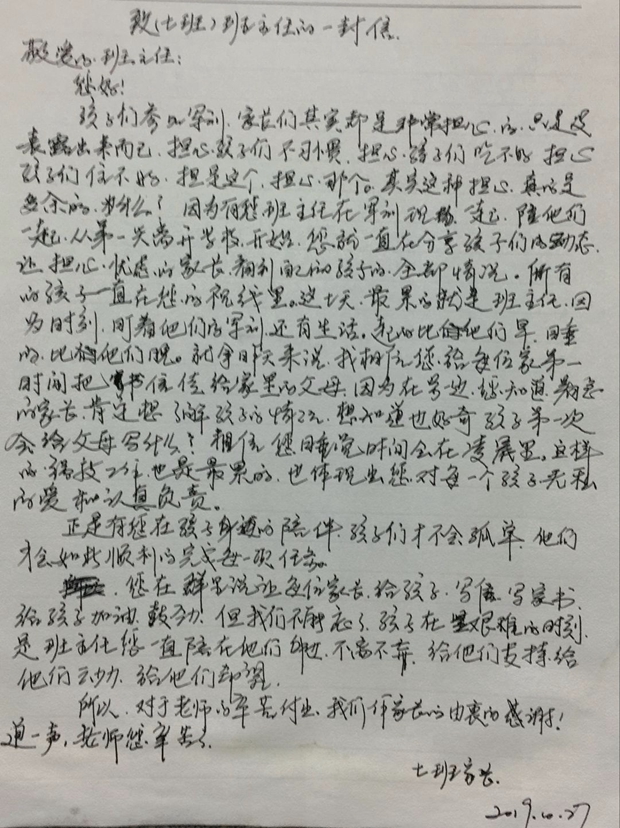 致(七班)班主任的一封信
敬爱的班主任:
您好!
孩子们参加军训,家长们其实都是非常担心的,只是没
表露出来而已,担心孩子们不习惯,担心孩子们吃不好,担心
孩子们住不好,担是这个,担心那个。其实这种担心,真的是
多余的,为什么?因为有您班主任在军训现场一起,陪他们
一起,从第一天离开学校开始,您就一直在分享孩子们的动态,
让担心、忧虑的家长看到自己的孩子的全部情况。所有
的孩子一直在您的视线里。这七天,最累的就是班主任,因
为时刻,盯着他们的军训,还有生活。起的比他们早,睡
的,比他们晚。就拿昨天来说,我相信您给每位家长第一
时间把书信传给家里的父母,因为在等边,您知道
的家长,肯定想了解孩子的情况,想知道也好奇孩子第一次
会给父母写什么?相信您睡觉时间会在凌晨里。这样
的工作也是最累的,也体现出您对每一个孩子无私
的爱和认真负责。
正是有您在孩子身边的陪伴,孩子们才不会孤单,他们
才会如此顺利的完成每一项任务。
您在群里说让每位家长,给孩子,写信,写家书,
给孩子加油,鼓劲,但我们不能忘了,孩子在最艰难的时刻,
是班主任您一直陪在他们身边,不离不弃,给他们支持给
他们动力,给他们希望。
所以,对于老师的辛苦付出,我们作家长的由衷的感谢!
道一声,老师您辛苦了
七班家长
2019.10.27